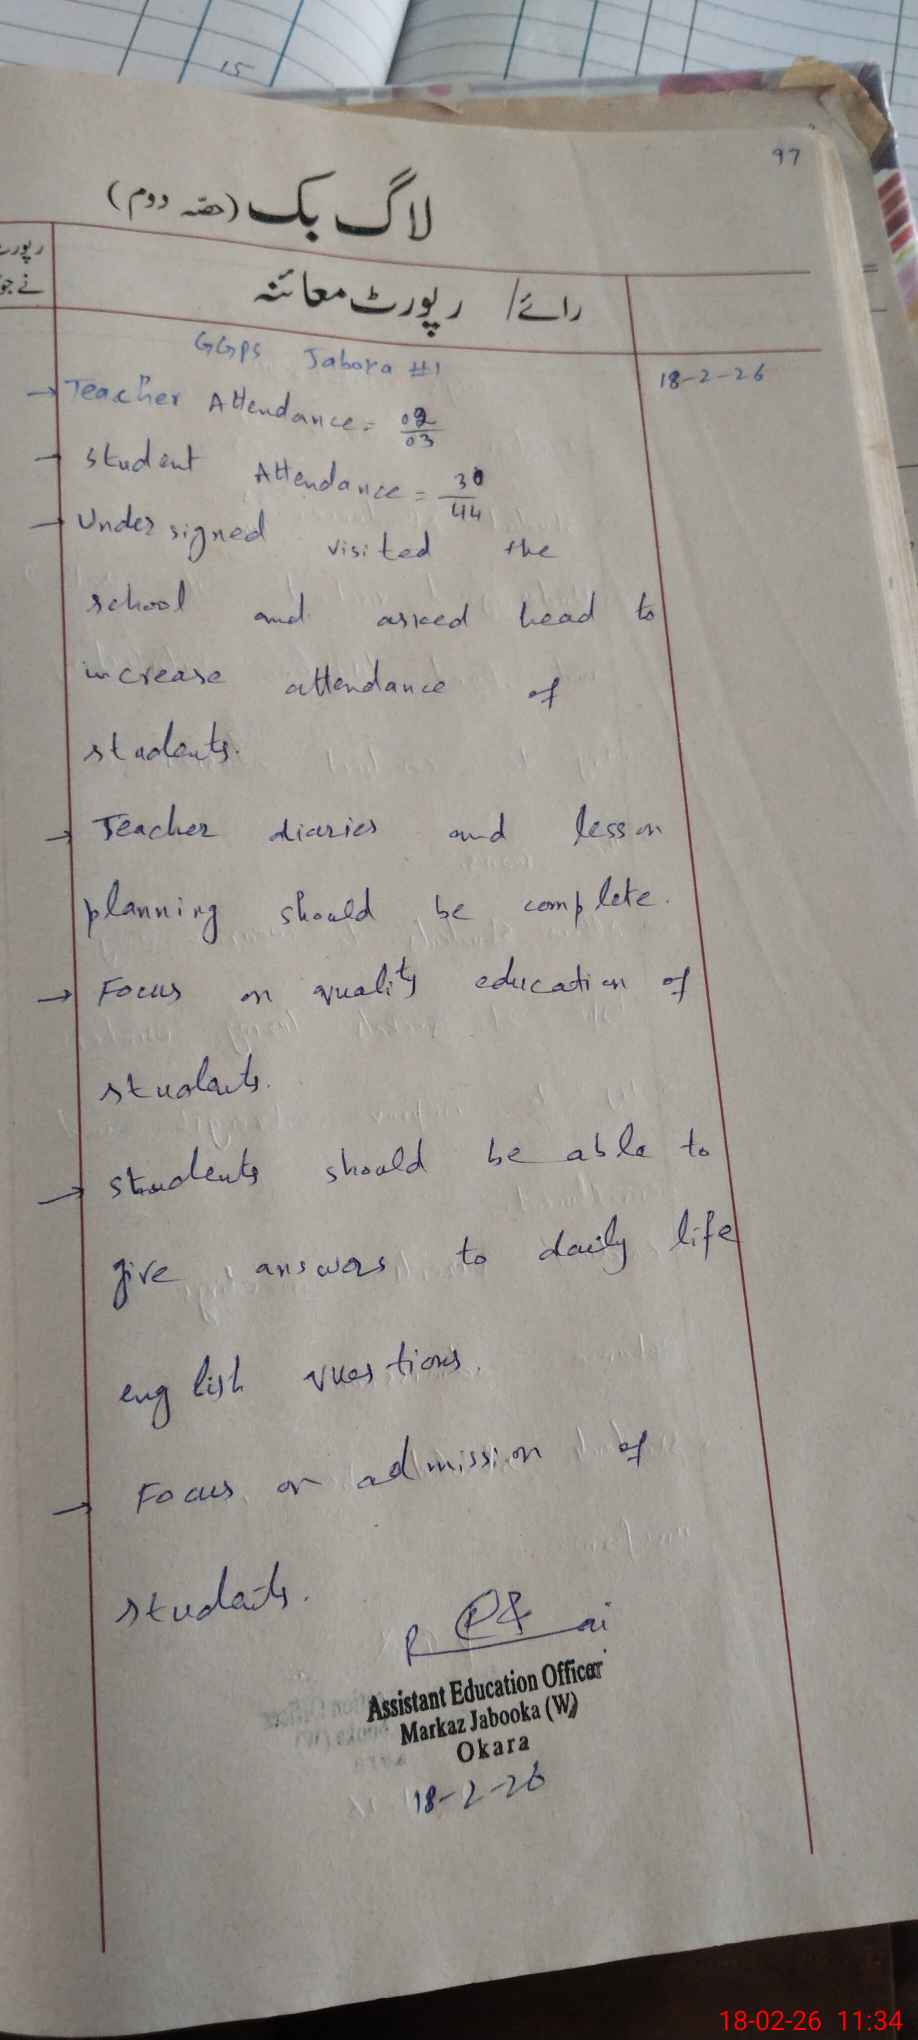 15
97
لاگ بک (حصّہ دوم)
رپورٹ
رائے / رپورٹ معائنہ
نے جو
GGPS Jaboka #1
18-2-26
→ Teacher Attendance = 02/03
→ student Attendance = 30/44
→ Under signed visited the
school and asked head to
increase attendance of
students.
→ Teacher diaries and lesson
planning should be complete.
→ Focus on quality education of
students.
→ students should be able to
give answers to daily life
english questions.
→ Focus on admission of
students.
Assistant Education Officer
Markaz Jabooka (W)
Okara
18-2-26
18-02-26 11:34